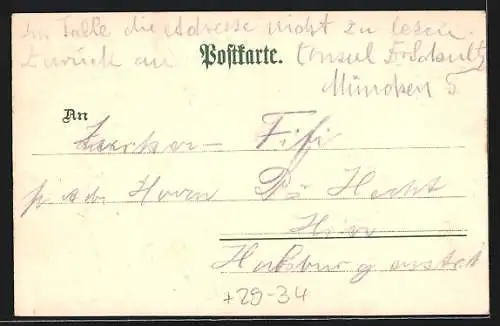 Im Falle die Adresse nicht zu lesen
zurück an Consul
Postkarte.
München 5
An
Fifi
Herrn Hecht
Hier
Habsburgerstr. 1
+29-34